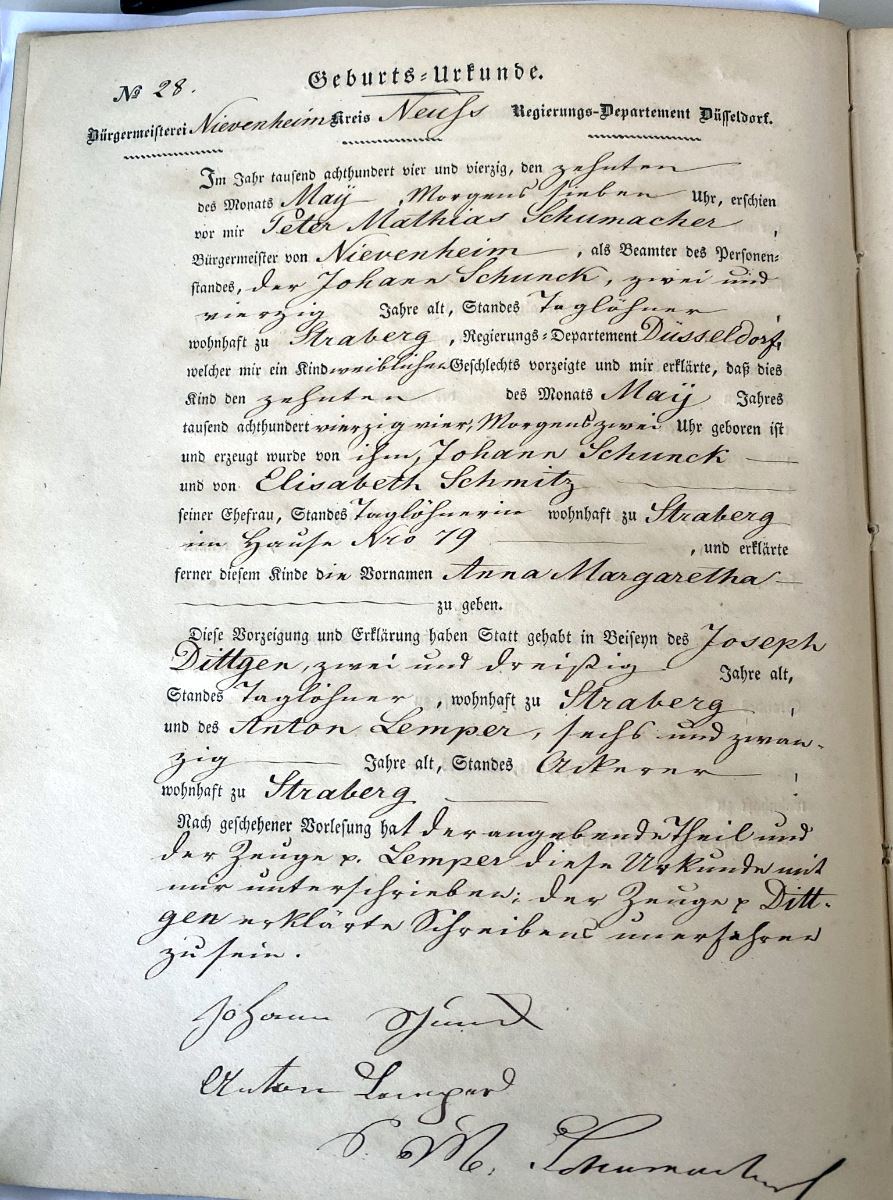 Geburts-Urkunde.
№ 28.
Bürgermeisterei Nievenheim Kreis Neuss Regierungs-Departement Düsseldorf.
Im Jahr tausend achthundert vier und vierzig, den zehnten
des Monats Maÿ, Morgens sieben Uhr, erschien
vor mir Peter Mathias Schumacher,
Bürgermeister von Nievenheim, als Beamter des Personen-
standes, der Johann Schunck, zwei und
vierzig Jahre alt, Standes Taglöhner,
wohnhaft zu Straberg, Regierungs-Departement Düsseldorf,
welcher mir ein Kind weiblichen Geschlechts vorzeigte und mir erklärte, daß dies
Kind den zehnten des Monats Maÿ Jahres
tausend achthundert vierzig vier, Morgens zwei Uhr geboren ist
und erzeugt wurde von ihm, Johann Schunck
und von Elisabeth Schmitz
seiner Ehefrau, Standes Taglöhnerin wohnhaft zu Straberg
im Hause Nro 79, und erklärte
ferner diesem Kinde die Vornamen Anna Margaretha
zu geben.
Diese Vorzeigung und Erklärung haben Statt gehabt in Beiseyn des Joseph
Dittgen, zwei und dreißig Jahre alt,
Standes Taglöhner, wohnhaft zu Straberg,
und des Anton Lemper, sechs und zwan-
zig Jahre alt, Standes Ackerer,
wohnhaft zu Straberg
Nach geschehener Vorlesung hat der angebende Theil und
der Zeuge p. Lemper diese Urkunde mit
mir unterschrieben; der Zeuge p Ditt-
gen erklärte Schreibens unerfahren
zu sein.
Johann Schunck
Anton Lemper
P. M. Schumacher